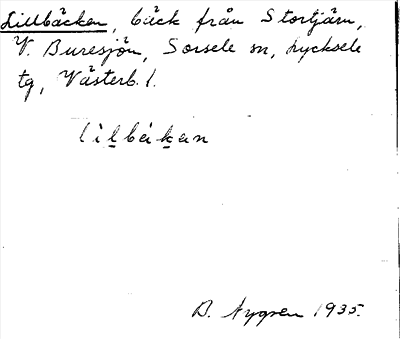 Lillbäcken, bäck från Stortjärn,
V. Buresjön, Sorsele sn, Lycksele
tg, Västerb. l.
lìl̲bäk̲an
B. Nygren 1935.